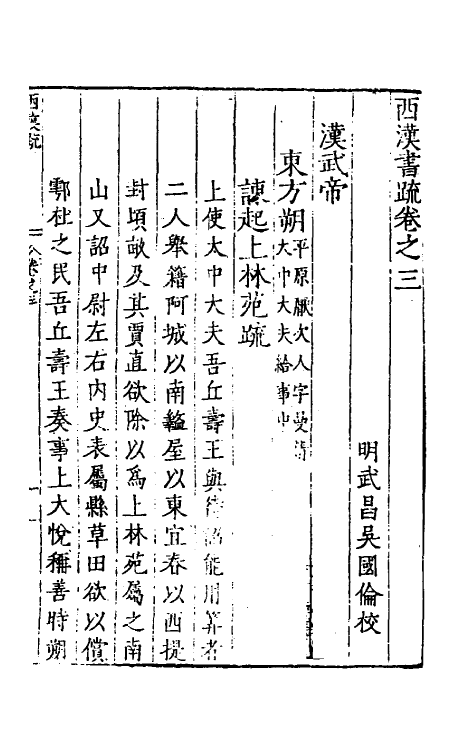 西漢書疏卷之三
明武昌吳國倫校
漢武帝
東方朔平原厭次人字曼倩大中大夫給事中
諫起上林苑疏
上使太中大夫吾丘壽王與待詔能用筭者
二人舉籍阿城以南盩屋以東宜春以西提
封頃畝及其賈直欲除以為上林苑屬之南
山又詔中尉左右內史表屬縣草田欲以償
鄠杜之民吾丘壽王奏事上大悅稱善時朔
西漢疏
卷之三